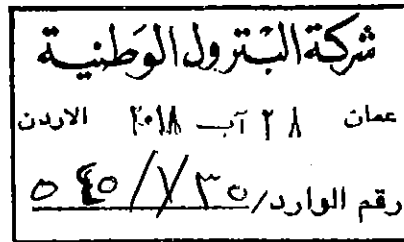 شركة البترول الوطنية
عمان ٢٨ آب ٢٠١٨ الاردن
رقم الوارد/٥٤٥/٧٣٥